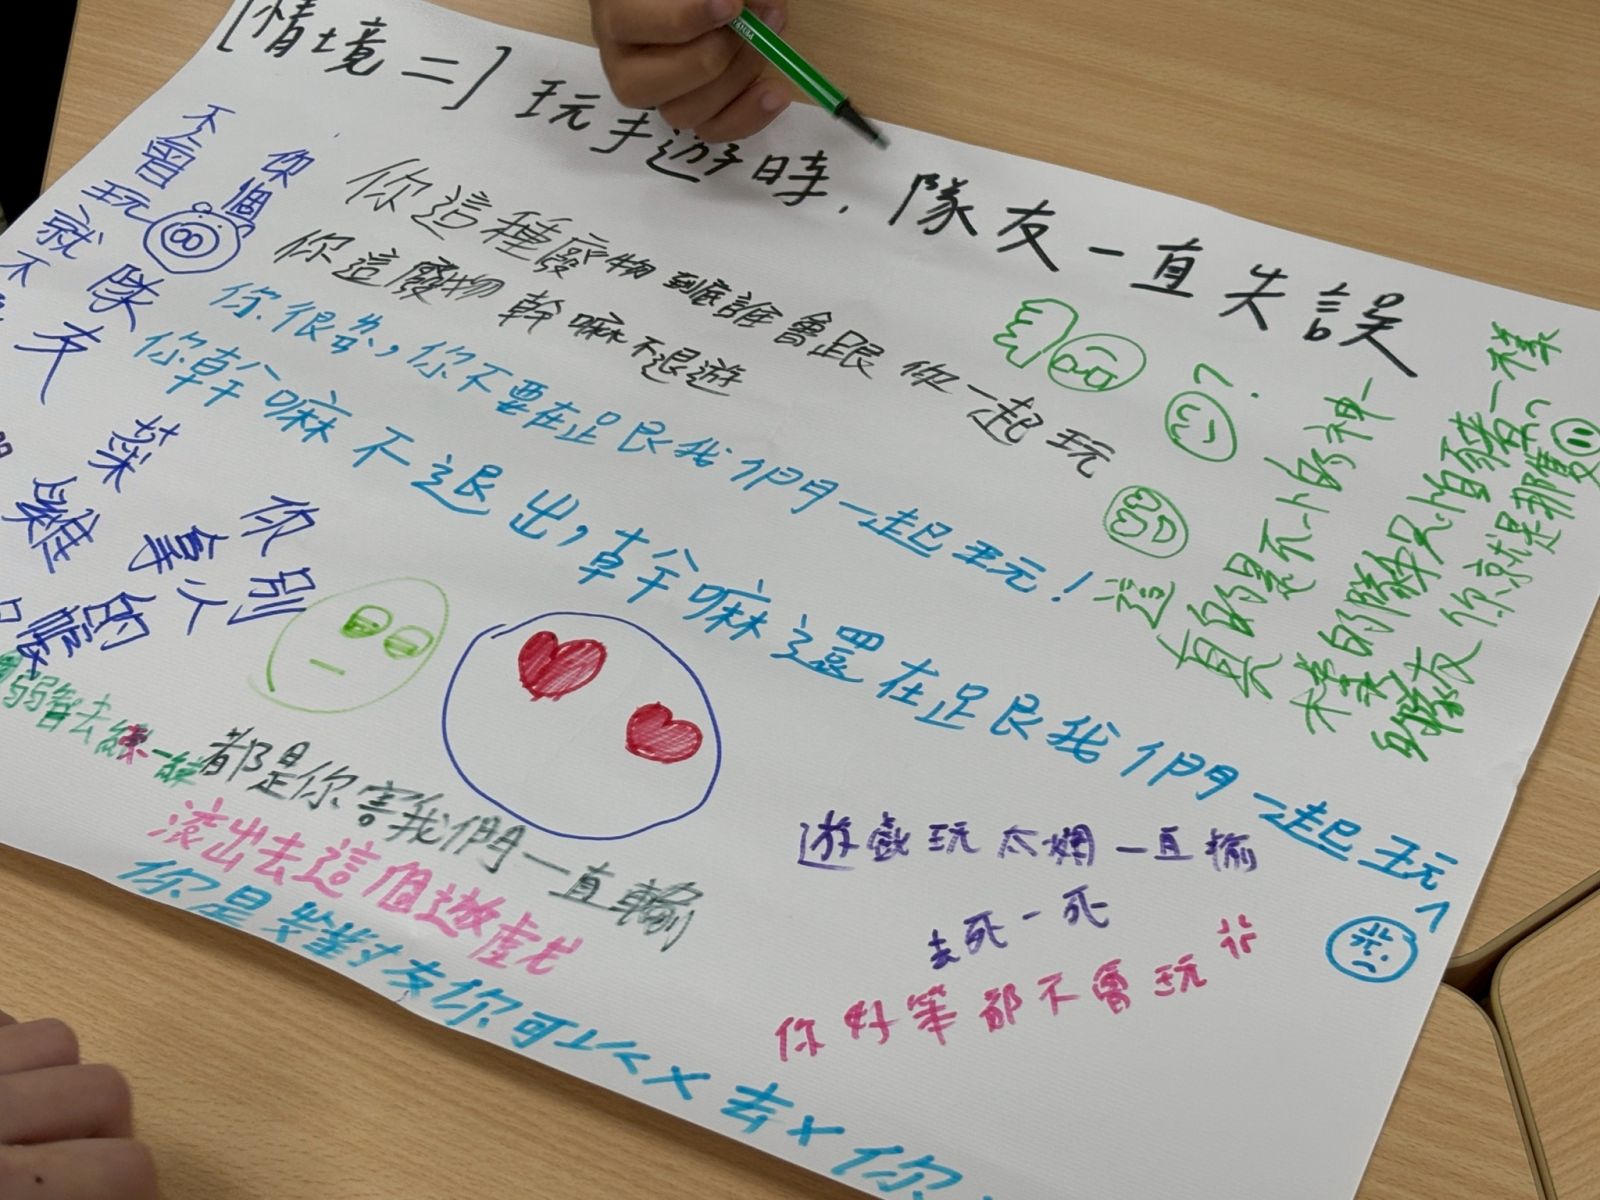 [情境二] 玩手遊時，隊友一直失誤
你這種廢物到底誰會跟你一起玩
你這廢物幹嘛不退遊
你很弱,你不要在跟我們一起玩!
你幹嘛不退出,幹嘛還在跟我們一起玩
你個
不會玩就不
隊友
菜雞
你別
拿人的
弱智去練一練
都是你害我們一直輸
滾出去這個遊戲
你是
友你可以 去 你
遊戲玩太爛一直輸
去死一死
你好笨都不會玩
這真的是不小的神一
樣的隊友只怕豬一樣
隊友你就是那隻